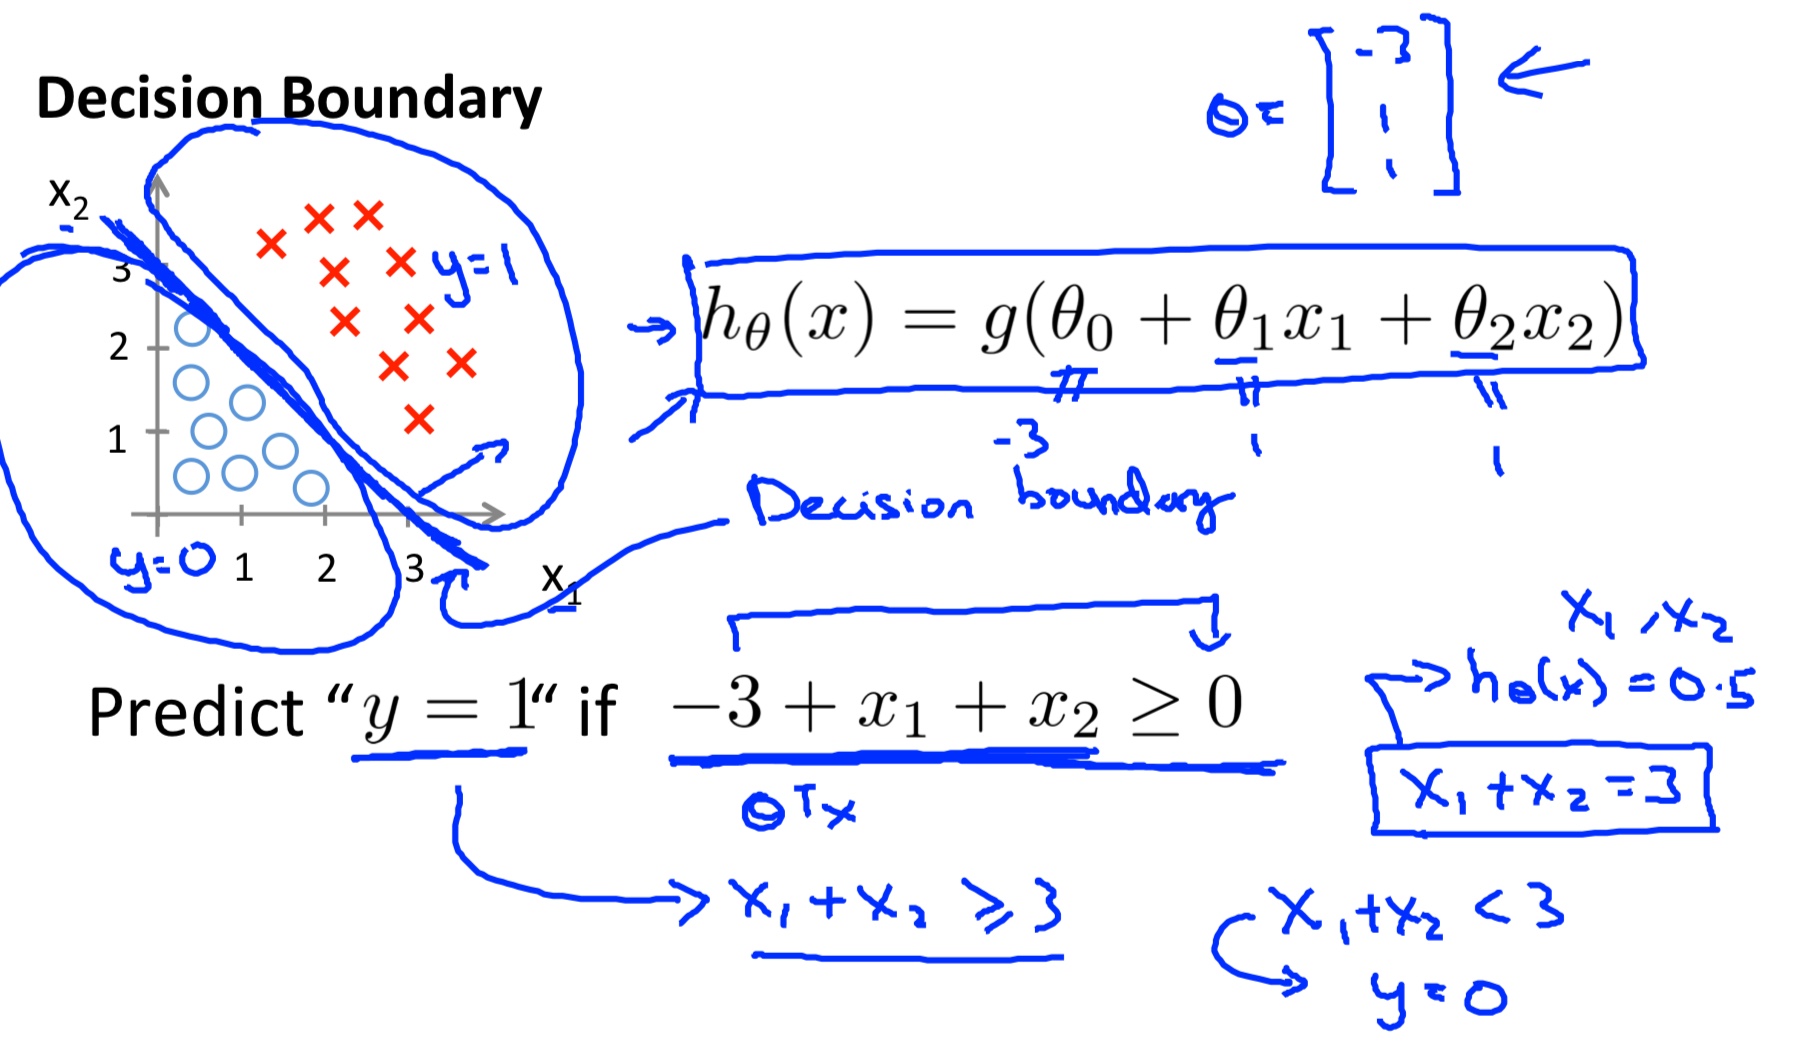 Decision Boundary
θ = [ -3 1 1 ]
x₂
3
2
1
y=1
y=0
1 2 3
x₁
hθ(x) = g(θ₀ + θ₁x₁ + θ₂x₂)
-3 1 1
Decision boundary
Predict “y = 1“ if −3 + x₁ + x₂ ≥ 0
θᵀx
x₁ + x₂ ≥ 3
x₁, x₂
hθ(x) = 0.5
x₁ + x₂ = 3
x₁ + x₂ < 3
y = 0